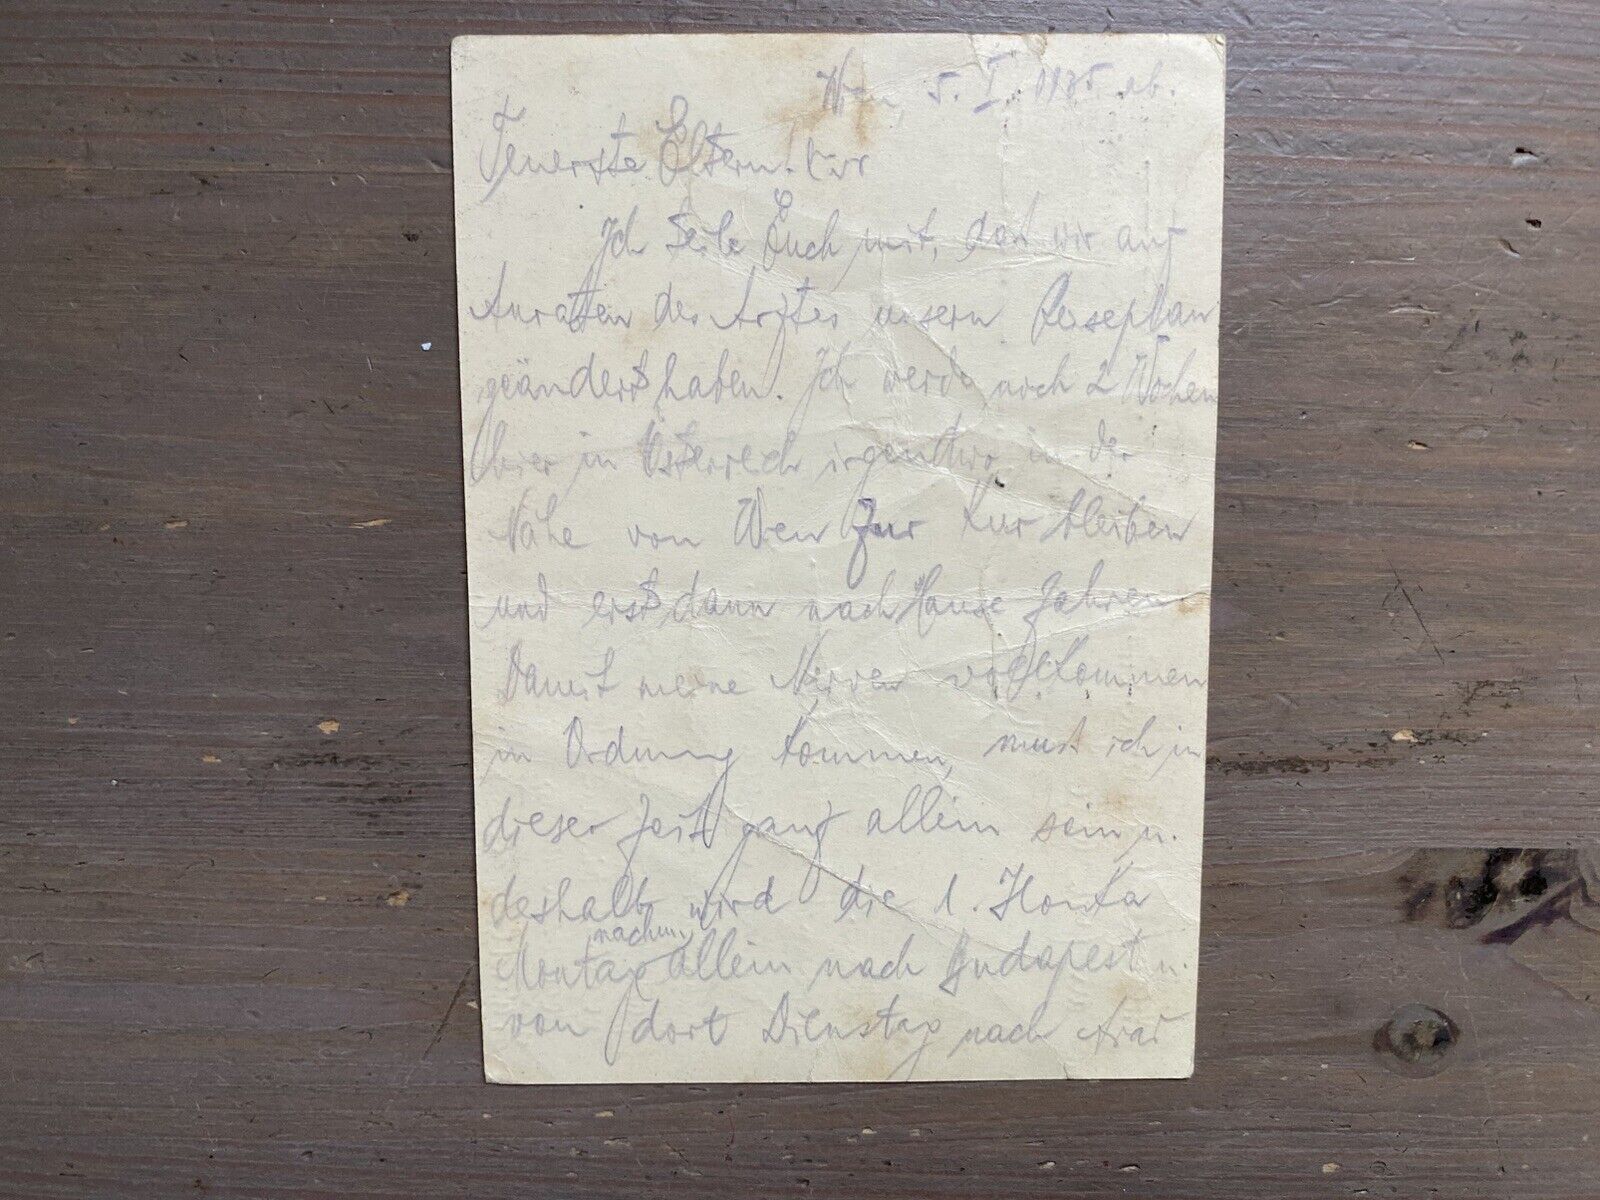 Wien, 5. I. 1935 ab.
Teuerste Eltern!
Ich teile Euch mit, dass wir auf
Anraten des Arztes unsern Reiseplan
geändert haben. Ich werde noch 2 Wochen
hier in Österreich irgendwo in der
Nähe von Wien zur Kur bleiben
und erst dann nach Hause fahren
Damit meine Nerven vollkommen
in Ordnung kommen, muss ich in
dieser Zeit ganz allein sein u.
deshalb wird die l. Honka
nachm.
Montag allein nach Budapest u.
von dort Dienstag nach Arad